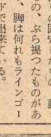 の、ぶら揚つたものがあ
、脚は何れもラインゴー
で出来てゐる。